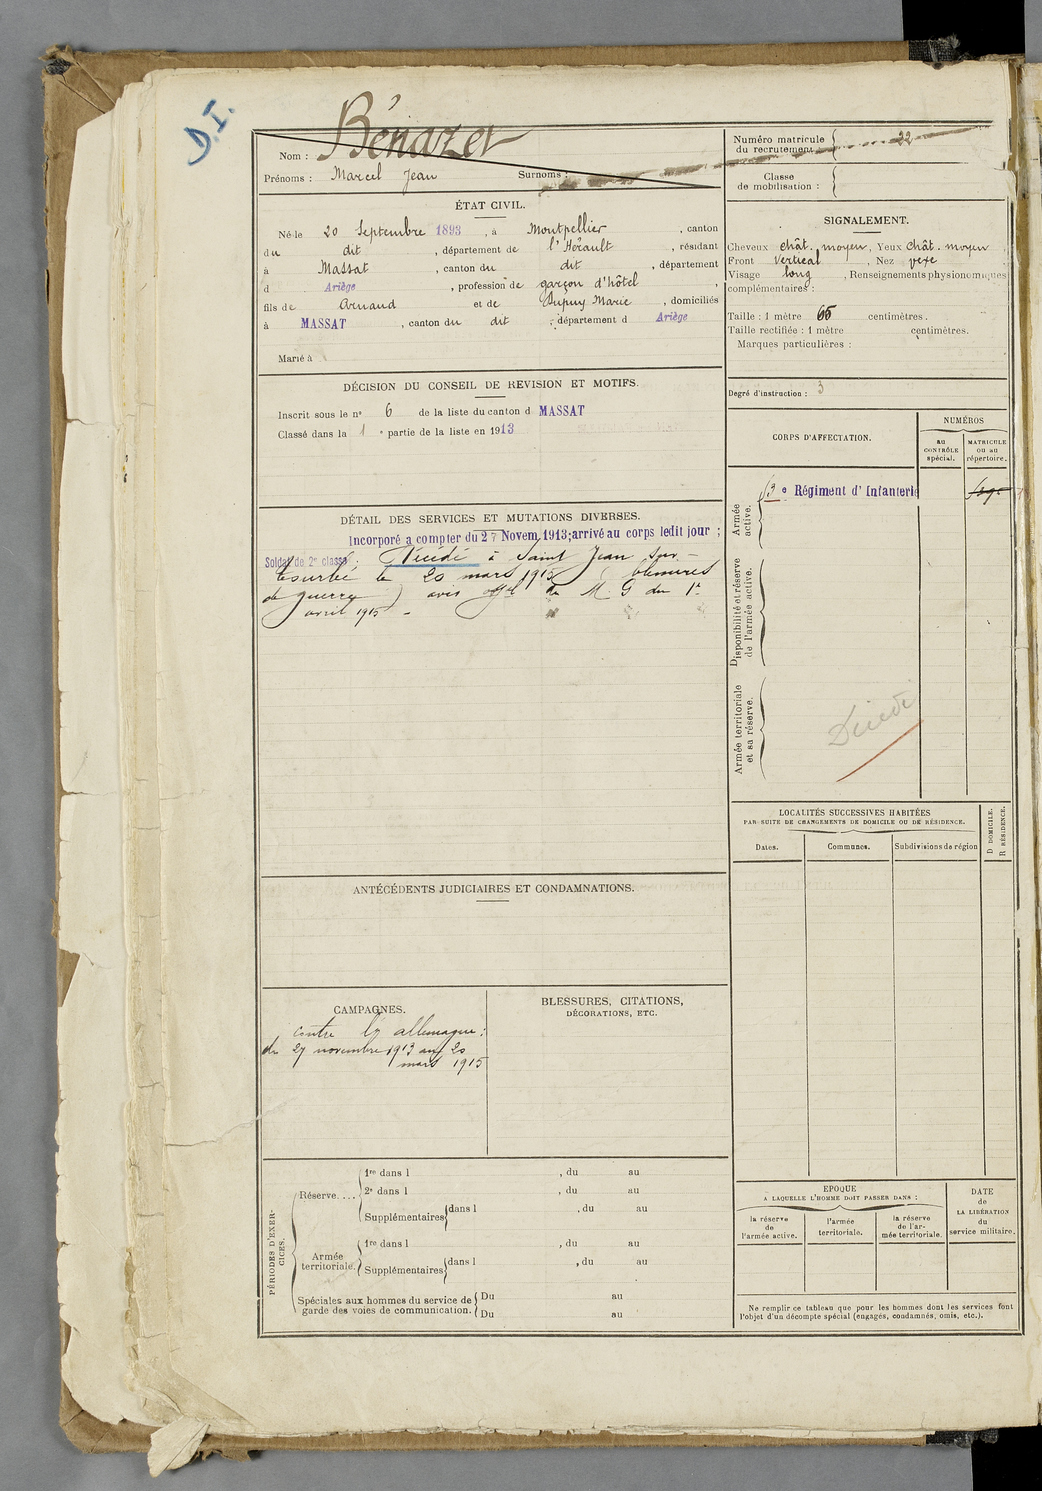 D.I.
Nom : Bénazet
Prénoms : Marcel Jean Surnoms :
Numéro matricule du recrutement : 22
Classe de mobilisation :
ÉTAT CIVIL.
Né le 20 Septembre 1893, à Montpellier, canton
du dit, département de l'Hérault, résidant
à Massat, canton du dit, département
d Ariège, profession de garçon d'hôtel,
fils de Arnaud et de Dupuy Marie, domiciliés
à MASSAT, canton du dit, département d Ariège
Marié à
SIGNALEMENT.
Cheveux chât. moyen, Yeux chât. moyen
Front vertical, Nez vexe
Visage long, Renseignements physionomiques
complémentaires :
Taille : 1 mètre 65 centimètres.
Taille rectifiée : 1 mètre centimètres.
Marques particulières :
Degré d'instruction : 3
DÉCISION DU CONSEIL DE REVISION ET MOTIFS.
Inscrit sous le n° 6 de la liste du canton d MASSAT
Classé dans la 1e partie de la liste en 1913
CORPS D'AFFECTATION.
NUMÉROS
AU CONTRÔLE spécial.
MATRICULE OU AU répertoire.
Armée active.
3e Régiment d'Infanterie
Disponibilité et réserve de l'armée active.
Armée territoriale et sa réserve.
Décédé
DÉTAIL DES SERVICES ET MUTATIONS DIVERSES.
Incorporé a compter du 27 Novem. 1913; arrivé au corps ledit jour ;
Soldat de 2e classe. Décédé à Saint Jean sur-
Tourbe le 20 mars 1915 ( blessures
de guerre ) avis M. G du 1er
avril 1915 -
LOCALITÉS SUCCESSIVES HABITÉES
PAR SUITE DE CHANGEMENTS DE DOMICILE OU DE RÉSIDENCE.
Dates.
Communes.
Subdivisions de région
D DOMICILE.
R RÉSIDENCE.
ANTÉCÉDENTS JUDICIAIRES ET CONDAMNATIONS.
CAMPAGNES.
contre allemagne :
du 27 novembre 1913 au 20
mars 1915
BLESSURES, CITATIONS,
DÉCORATIONS, ETC.
PÉRIODES D'EXERCICES.
Réserve....
1re dans l , du au
2e dans l , du au
Supplémentaires dans l , du au
Armée territoriale.
1re dans l , du au
Supplémentaires dans l , du au
Spéciales aux hommes du service de
garde des voies de communication.
Du au
Du au
EPOQUE
A LAQUELLE L'HOMME DOIT PASSER DANS :
la réserve de l'armée active.
l'armée territoriale.
la réserve de l'armée territoriale.
DATE
de
LA LIBÉRATION
du
service militaire.
Ne remplir ce tableau que pour les hommes dont les services font
l'objet d'un décompte spécial (engagés, condamnés, omis, etc.).